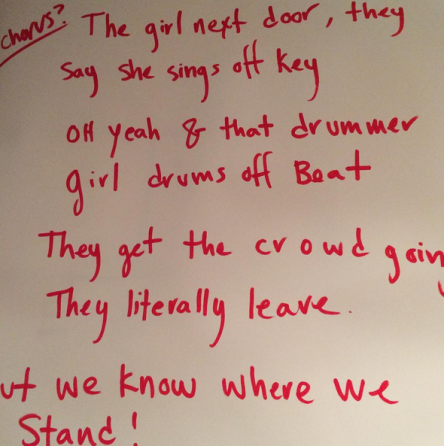 chorus?
The girl next door, they
say she sings off key
OH yeah & that drummer
girl drums off Beat
They get the crowd goin
They literally leave.
ut we know where we
Stand!